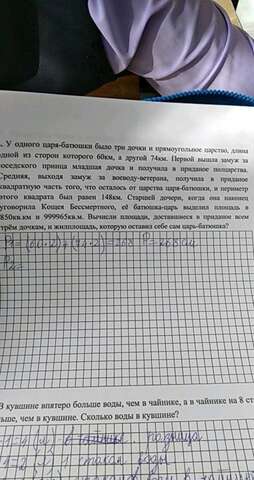 У одного царя-батюшки было три дочки и прямоугольное царство, длина
одной из сторон которого 60км, а другой 74км. Первой вышла замуж за
соседского принца младшая дочка и получила в приданое полцарства.
Средняя, выходя замуж за воеводу-ветерана, получила в приданое
квадратную часть того, что осталось от царства царя-батюшки, и периметр
этого квадрата был равен 148км. Старшей дочери, когда она наконец
уговорила Кощея Бессмертного, её батюшка-царь выделил площадь в
850кв.км и 999965кв.м. Вычисли площади, доставшиеся в приданое всем
трём дочкам, и жилплощадь, которую оставил себе сам царь-батюшка?
P1=(60·2)+(74·2)=268 P=268
P2=
В кувшине впятеро больше воды, чем в чайнике, а в чайнике на 8 ст
ьше, чем в кувшине. Сколько воды в кувшине?